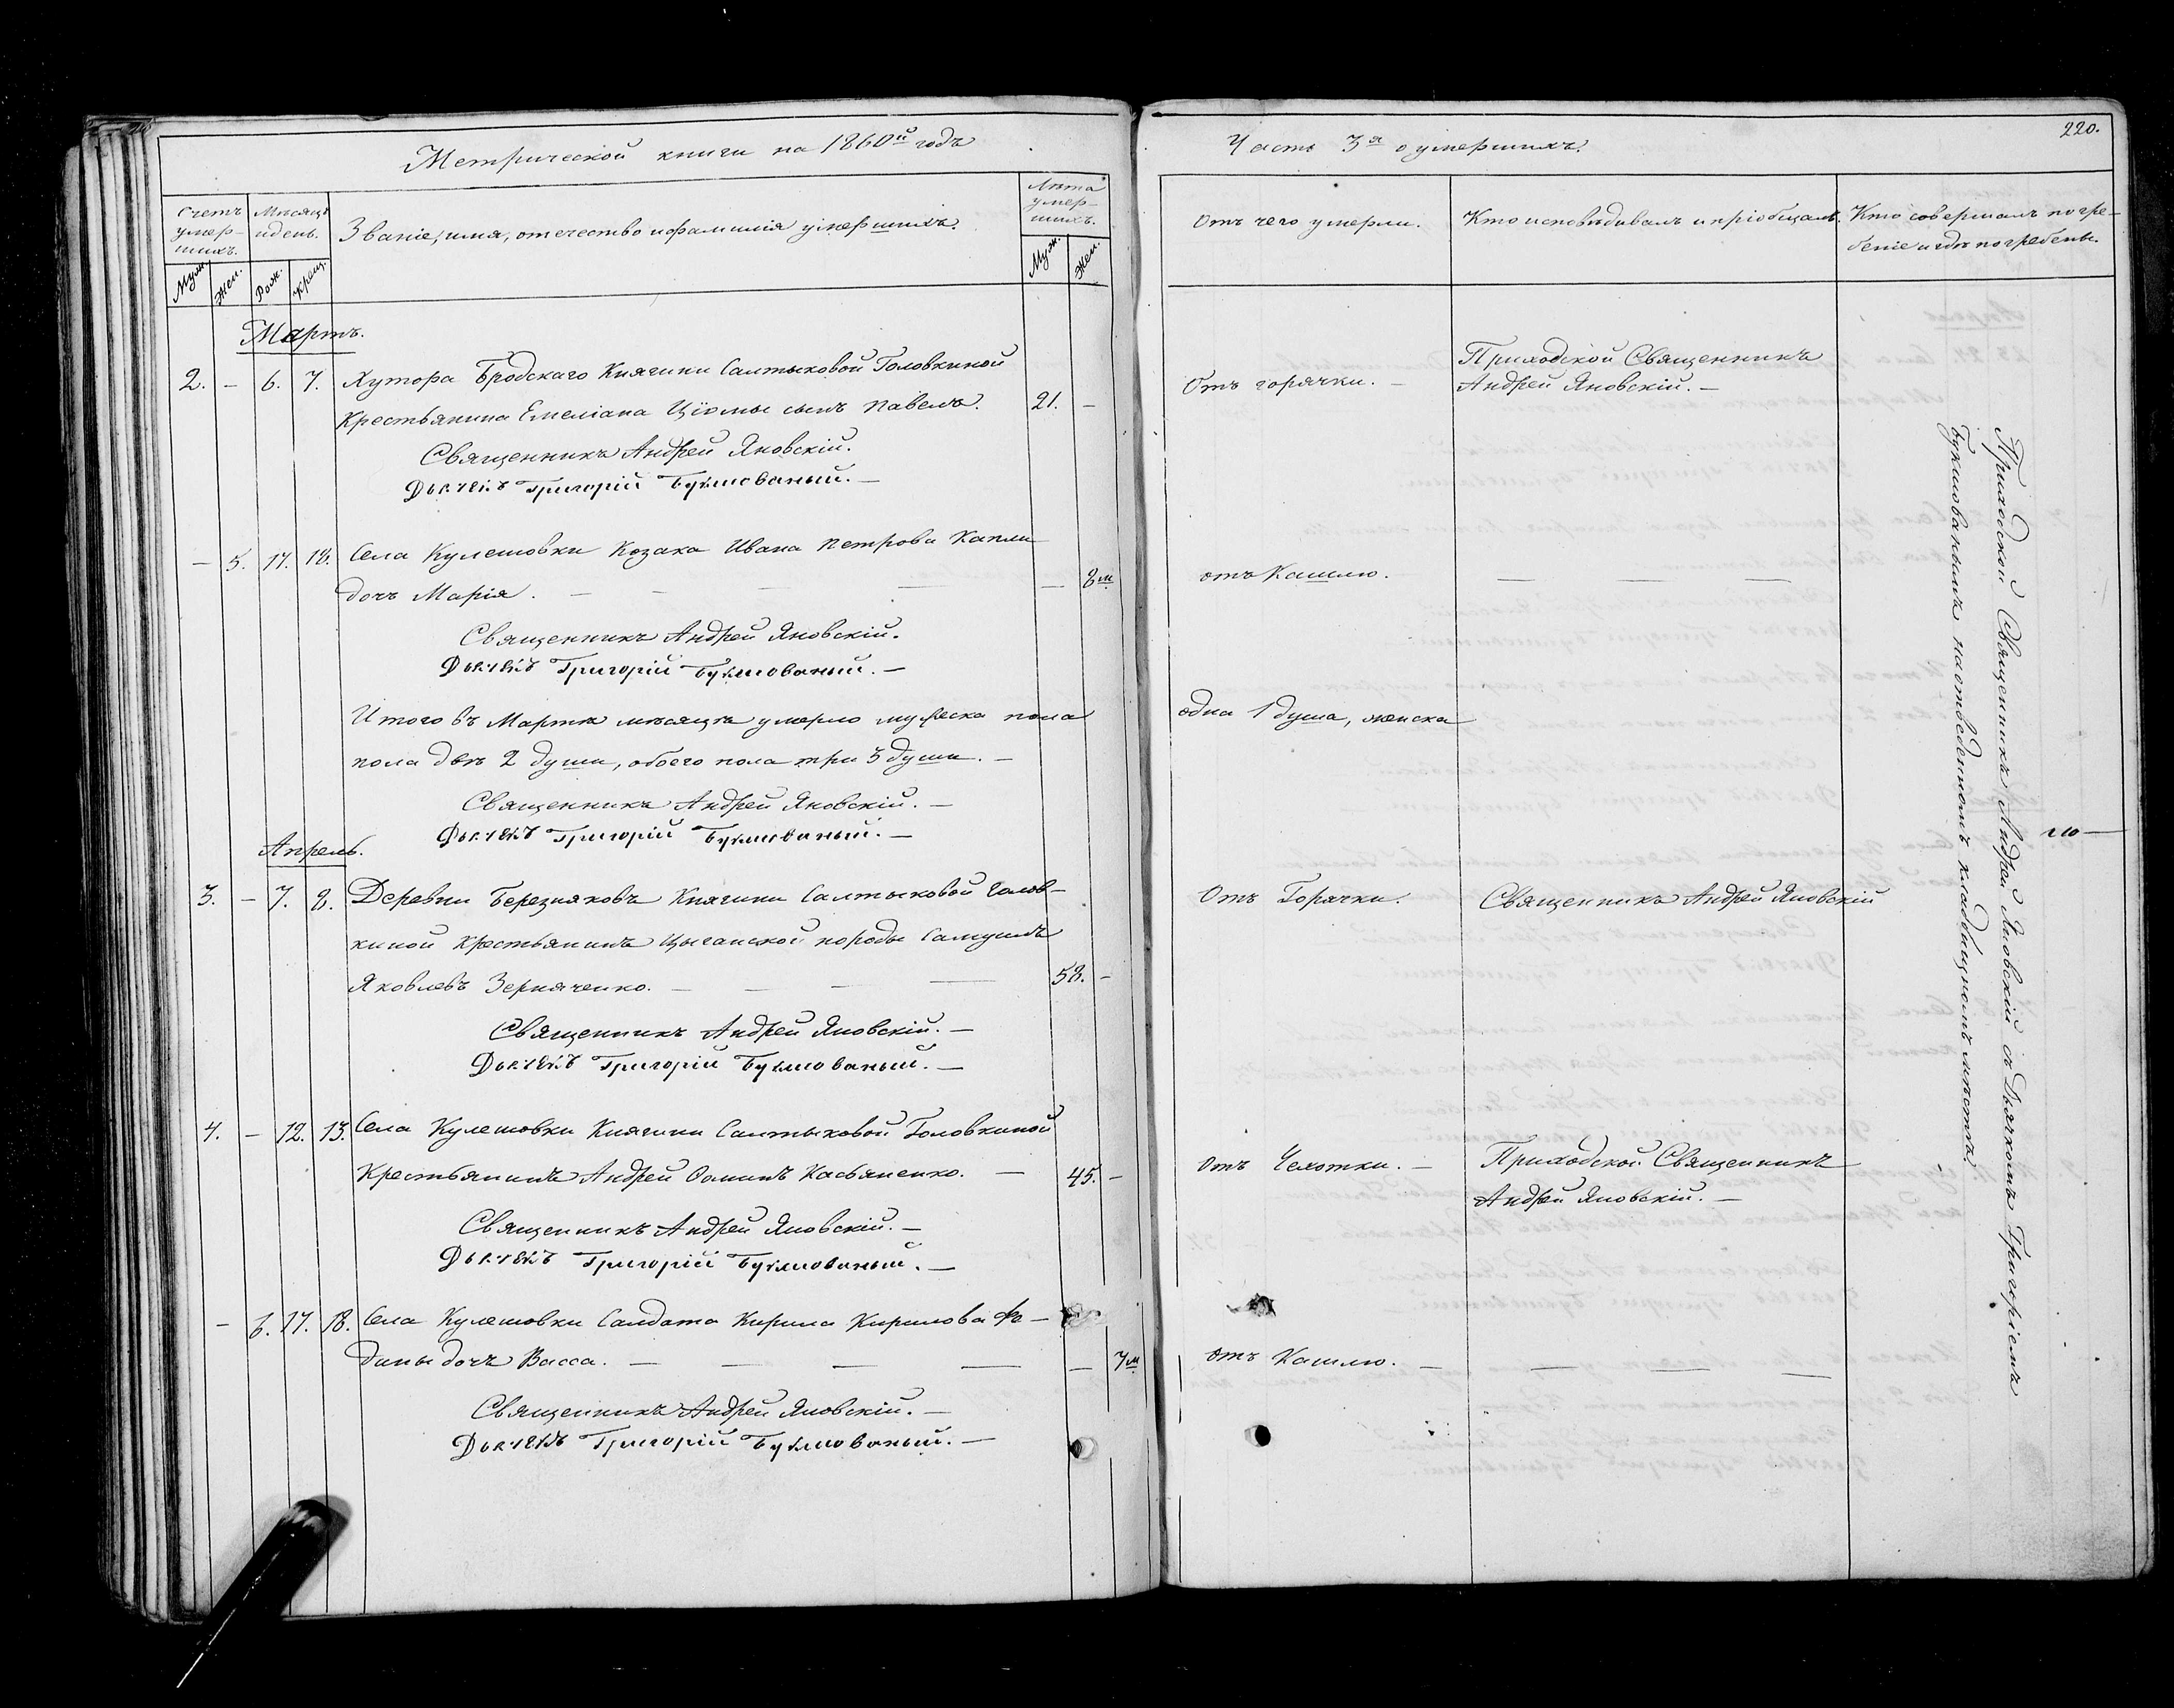 Метрической книги на 1860й годъ
Часть 3я о умершихъ.
220.
Счетъ умер-шихъ.
Мѣсяцъ и день.
Званіе, имя, отечество и фамилія умершихъ.
Лѣта умер-шихъ.
Муж. Жен. Рож. Крещ.
Муж. Жен.
Отъ чего умерли.
Кто исповѣдивалъ и пріобщалъ.
Кто совершалъ погре-
беніе и гдѣ погребены.
Мартъ.
2. – 6. 7. Хутора Бродскаго Княгини Салтыковой Головкиной
Крестьянина Емеліана Цiомы сынъ Павелъ. 21. –
Отъ горячки. –
Приходской Священникъ
Андрей Яновскій. –
Священникъ Андрей Яновскій.
Дьячекъ Григорій Букшованый. –
– 5. 17. 18. Села Кулешовки Козака Ивана Петрова Капли
дочъ Марія. – – – – – 8м
отъ Кашлю. – – –
Священникъ Андрей Яновскій.
Дьячекъ Григорій Букшованый. –
Итого въ Мартѣ мѣсяцѣ умерло мужеска пола одна 1 душа, женска
пола двѣ 2 души, обоего пола три 3 души. –
Священникъ Андрей Яновскій. –
Дьячекъ Григорій Букшованый. –
Апрель.
3. – 7. 8. Деревни Березняковъ Княгини Салтыковой Голов-
киной Крестьянинъ Цыганской породы Самуилъ
Яковлевъ Зерняченко. – – – – 58. –
Отъ Горячки.
Священникъ Андрей Яновскій
Священникъ Андрей Яновскій. –
Дьячекъ Григорій Букшованый. –
4. – 12. 13. Села Кулешовки Княгини Салтыковой Головкиной
Крестьянинъ Андрей Фоминъ Касьяненко. – 45. –
Отъ Чехотки. –
Приходской Священникъ
Андрей Яновскій. –
Священникъ Андрей Яновскій. –
Дьячекъ Григорій Букшованый. –
– 6. 17. 18. Села Кулешовки Салдата Кирила Кирилова Фѣ-
дины дочъ Васса. – – – – – 7м
Отъ Кашлю. – – – –
Священникъ Андрей Яновскій. –
Дьячекъ Григорій Букшованый. –
Приходской Священникъ Андрей Яновскій съ Дьячкомъ Григоріемъ
Букшованымъ на отведенномъ кладбищномъ мѣстѣ.